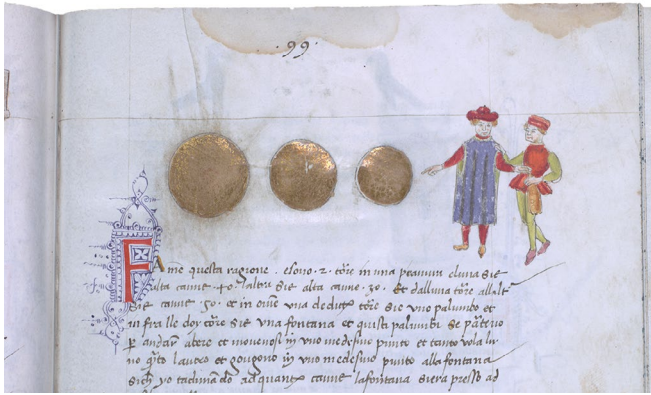 99
Fame questa ragione . esono . 2 . torre in una peanura eluna sie
alta canne 40 . laltra sie alta canne . 30 . Et dalluna torre allalt
sie canne . 50 . et in cima una de dutj torre sie uno palumbo et
in fra lle doy torre sie una fontana et quisti palumbi se partero
per andare a bere et moveno si in uno medesimo punto et tanto vola lu
no quanto laltro et gongono in uno medesimo punto alla fontana
sich yo taddimando ad quante canne la fontana sera presso ad